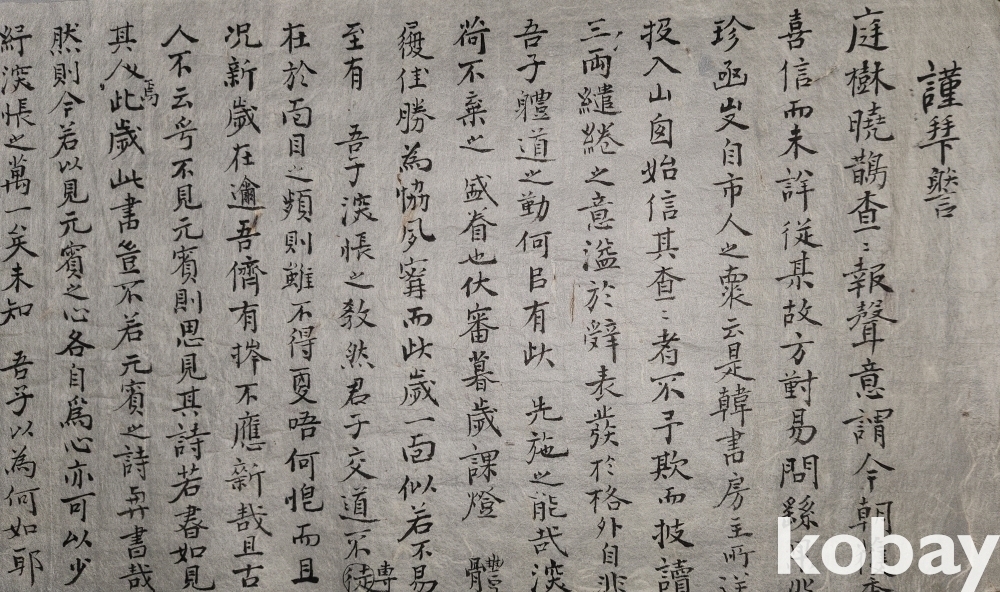 謹拜謦
庭樹曉鵲查〻報聲意謂今朝
喜信而未詳從某故方對易問繇
珍函叟自市人之橐云是韓書房主所
投入山囱始信其查〻者不予欺而披讀
三兩繾綣之意溢於辭表發於格外自非
吾子軆道之勤何㠯有此 先施之能哉深
荷不棄之 盛眷也伏審暮歲課燈 體
履佳勝為恊夙甯而此歲一面似若不易
至有 吾子深悵之敎然君子交道不徒專
在於面目之頻則雖不得更唔何悒而且
况新歲在邇吾儕有撛不應新哉且古
人不云乎不見元賓則思見其詩若書如見
其人焉此歲此書豈不若元賓之詩與書哉
然則今若以見元賓之心各自爲心亦可以少
紓深悵之萬一矣未知 吾子以為何如耶
kobay